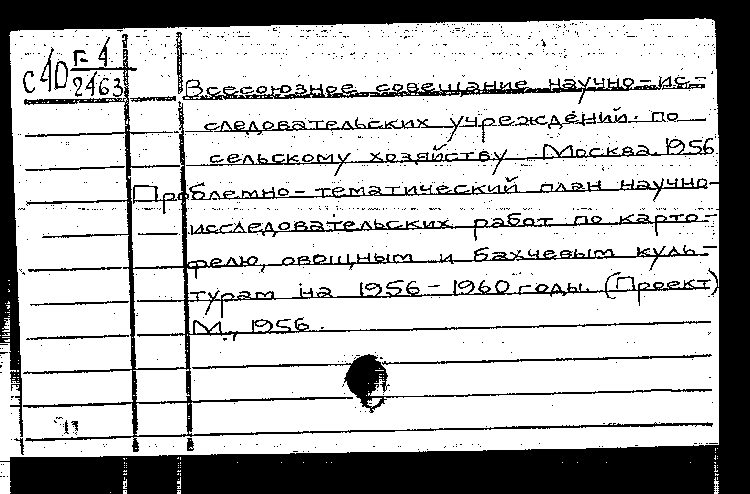 С4D Г-4
2463
Всесоюзное совещание научно-ис-
следовательских учреждений по
сельскому хозяйству Москва. 1956
Проблемно-тематический план научно-
исследовательских работ по карто-
фелю, овощным и бахчевым куль-
турам на 1956-1960 годы. (Проект)
М., 1956.